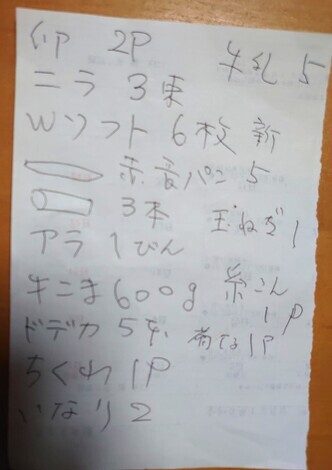 卵 2P 牛乳 5
ニラ 3束
Wソフト 6枚 新
赤 パン 5
3本 玉ねぎ 1
アラ 1びん
牛こま600g 糸こん 1P
ドデカ 5ケ 菊な 1P
ちくわ 1P
いなり 2